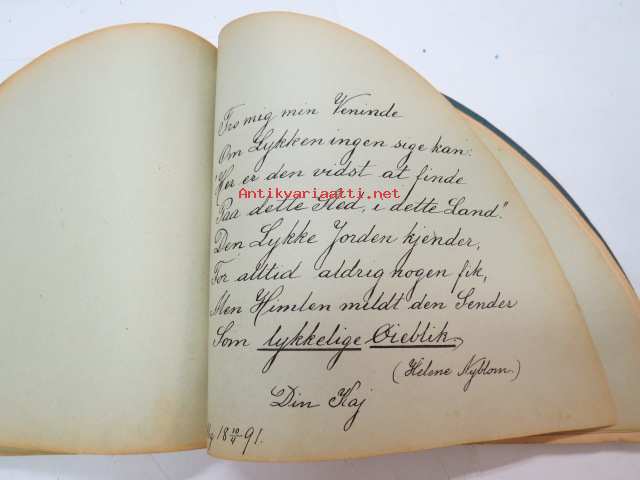 Tro mig min Veninde
Om Lykken ingen sige kan:
"Her er den vidst at finde
Antikvariaatti.net
Paa dette Sted, i dette Land."
Den Lykke Jorden kjender,
For alltid aldrig nogen fik,
Men Himlen meldt den Sender
Som lykkelige Øieblik.
(Helene Nyblom.)
Din Kaj
18 10/4 91.